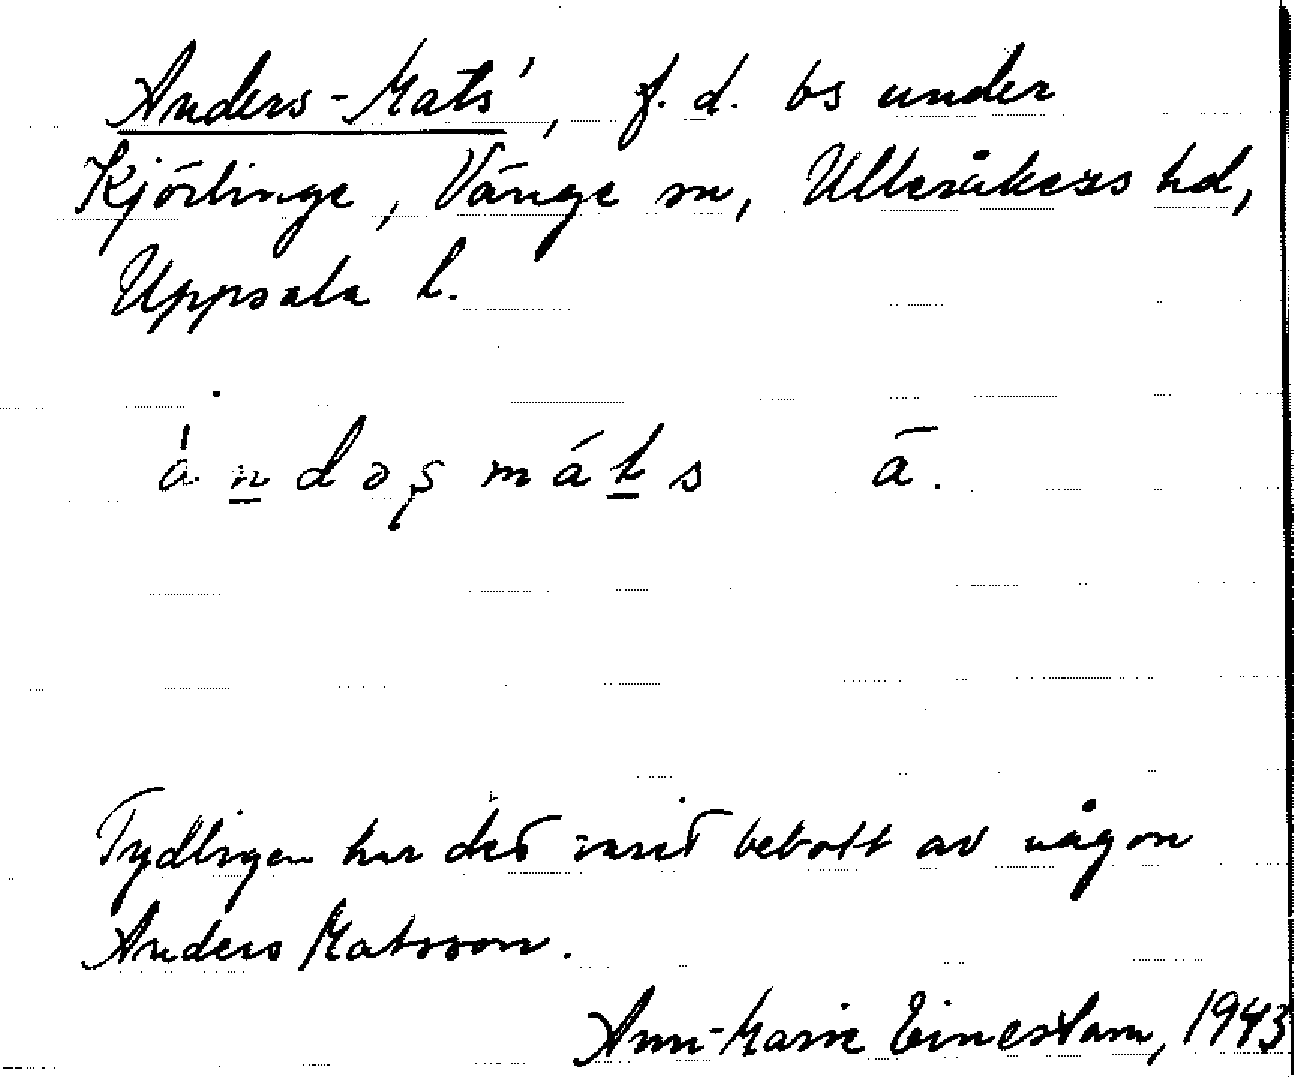 Anders-Mats', f. d. bs under
Kjörlinge, Vänge sn, Ulleråkers hd,
Uppsala l.
ándəʂ máts ā.
Tydligen har det varit bebott av någon
Anders Matsson.
Ann-Marie Einestam, 1943